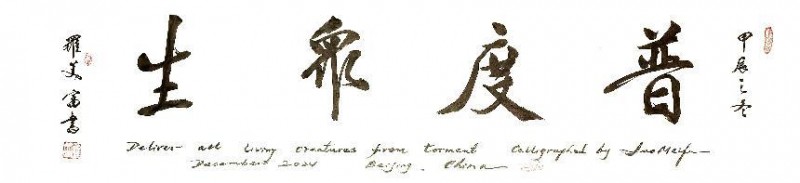 甲辰之冬
普度眾生
羅美富書
Deliver all living creatures from torment Calligraphed by Luo Meifu
December 2024 Beijing, China